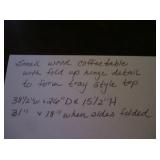 Small wood coffee table
with fold up hinge detail
to form tray style top
38 1/2"W x 26" D x 15 1/2" H
31" x 18" when sides folded